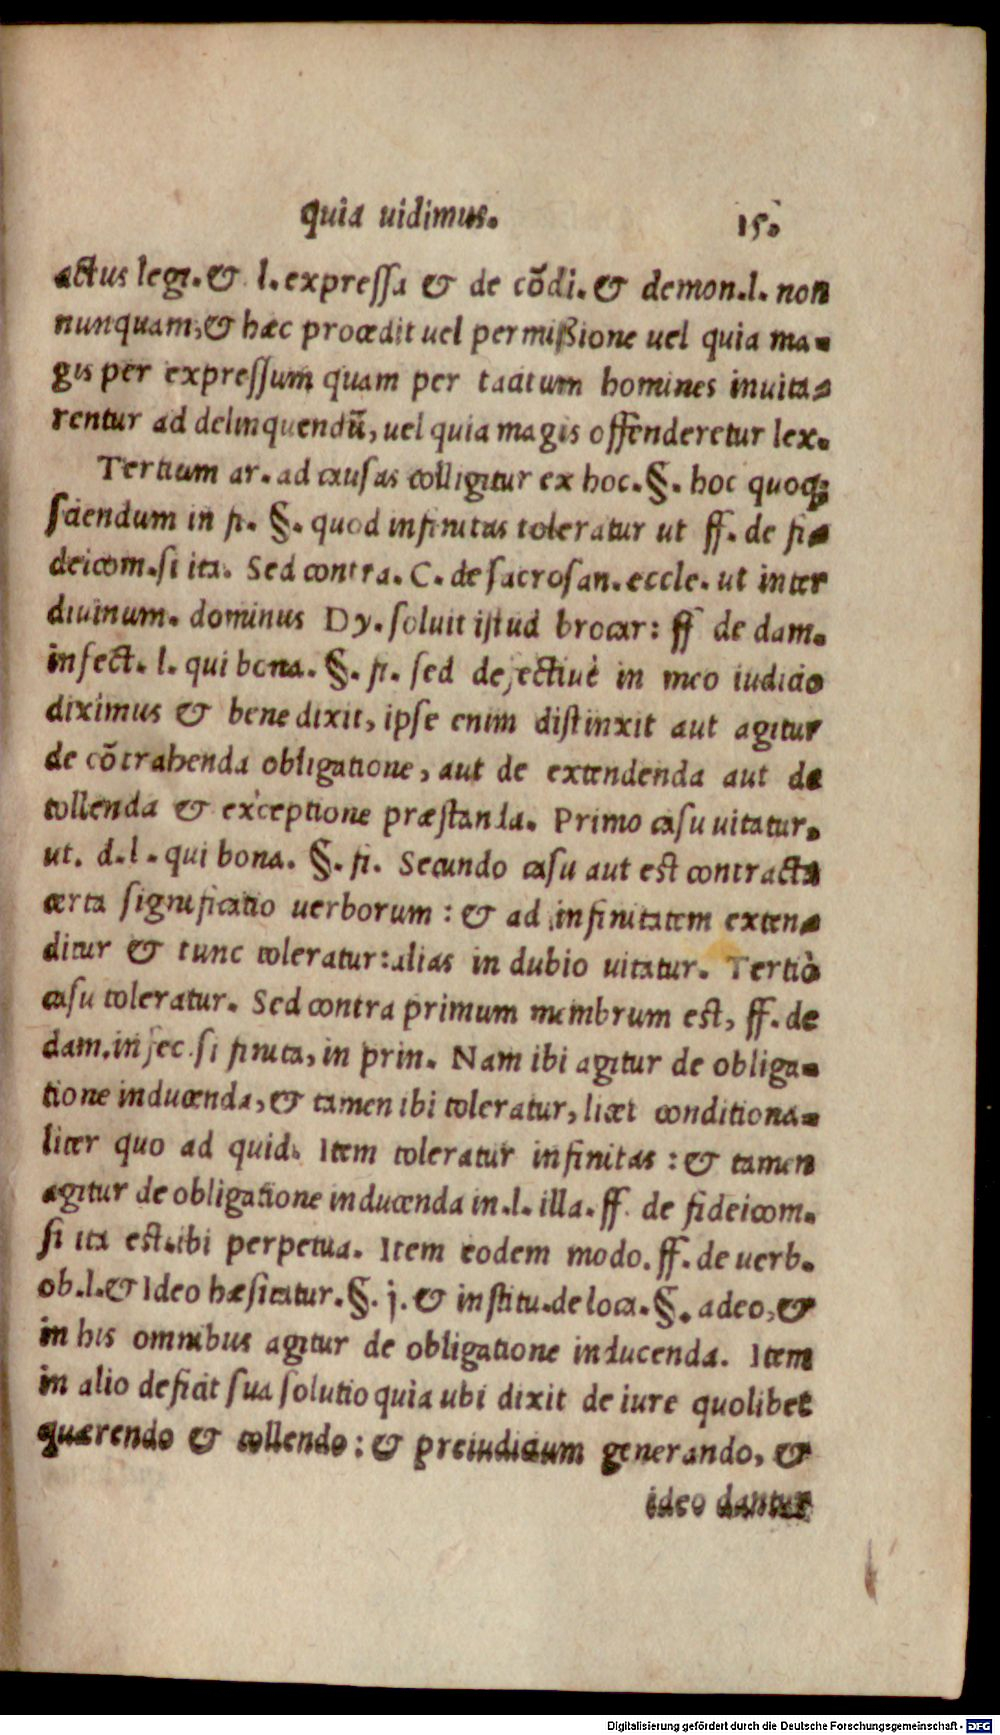 quia uidimus. 15.
actus legi. & l. expressa & de cōdi. & demon. l. non
nunquam, & hæc procedit uel permißione uel quia ma-
gis per expressum quam per tacitum homines inuita-
rentur ad delinquendū, uel quia magis offenderetur lex.
Tertium ar. ad causas colligitur ex hoc. §. hoc quoq;
sciendum in fi. §. quod infinitas toleratur ut ff. de fi-
deicom. si ita. Sed contra. C. de sacrosan. eccle. ut inter
diuinum. dominus Dy. soluit istud brocar: ff de dam.
infect. l. qui bona. §. fi. sed defectiuè in meo iudicio
diximus & bene dixit, ipse enim distinxit aut agitur
de cōtrahenda obligatione, aut de extendenda aut de
tollenda & exceptione præstanda. Primo casu uitatur.
ut. d. l. qui bona. §. fi. Secundo casu aut est contracta
certa significatio uerborum : & ad infinitatem exten-
ditur & tunc toleratur: alias in dubio uitatur. Tertiò
casu toleratur. Sed contra primum membrum est, ff. de
dam. infec. si finita, in prin. Nam ibi agitur de obliga-
tione inducenda, & tamen ibi toleratur, licet conditiona-
liter quo ad quid. Item toleratur infinitas : & tamen
agitur de obligatione inducenda in. l. illa. ff de fideicom.
si ita est. ibi perpetua. Item eodem modo. ff. de uerb.
ob. l. & Ideo hæsitatur. §. j. & institu. de loca. §. adeo, &
in his omnibus agitur de obligatione inducenda. Item
in alio deficit sua solutio quia ubi dixit de iure quolibet
quærendo & tollendo : & preiudicium generando, &
ideo dantur
Digitalisierung gefördert durch die Deutsche Forschungsgemeinschaft - DFG